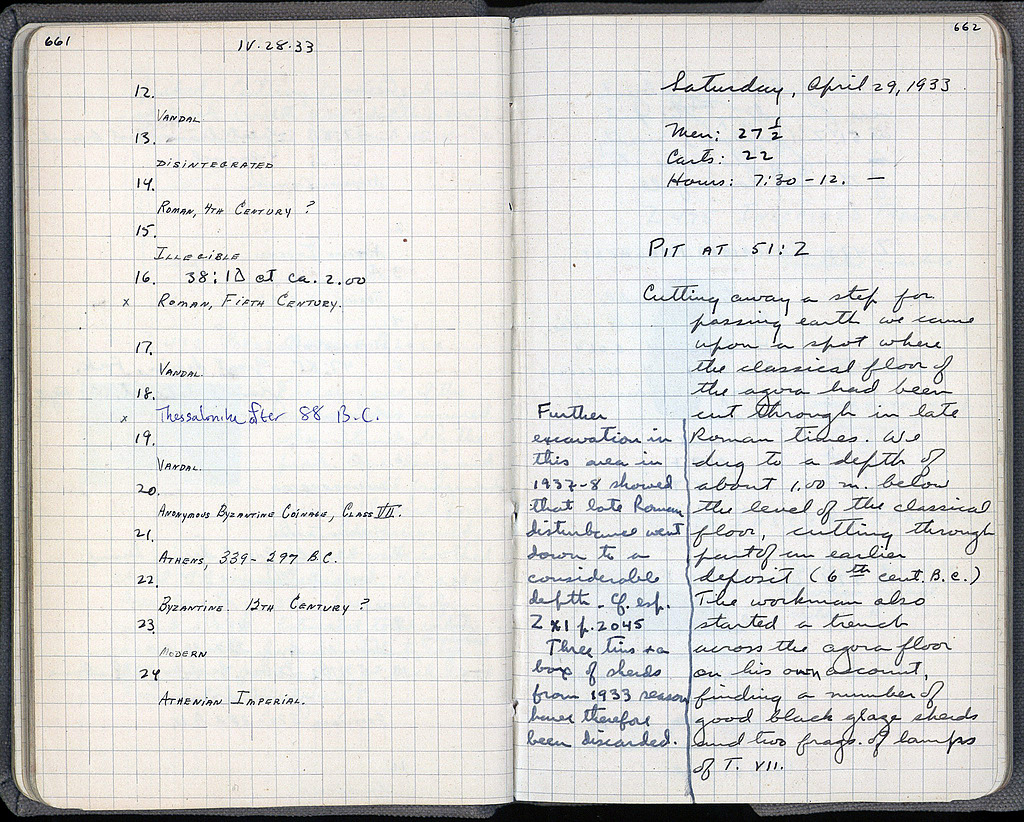 661
IV·28·33
12.
VANDAL
13.
DISINTEGRATED
14.
ROMAN, 4TH CENTURY ?
15.
ILLEGIBLE
16. 38:ID at ca. 2.00
x ROMAN, FIFTH CENTURY.
17.
VANDAL.
18.
x Thessalonike after 88 B.C.
19.
VANDAL.
20.
ANONYMOUS BYZANTINE COINAGE, CLASS VII.
21.
ATHENS, 339-297 B.C.
22.
BYZANTINE. 12TH CENTURY ?
23.
MODERN
24
ATHENIAN IMPERIAL.
662
Saturday, April 29, 1933
Men: 27 1/2
Carts: 22
Hours: 7:30-12. —
PIT AT 51:Z
Cutting away a step for
passing earth we came
upon a spot where
the classical floor of
the agora had been
cut through in late
Roman times. We
dug to a depth of
about 1,00 m. below
the level of the classical
floor, cutting through
part of an earlier
deposit (6th cent. B.C.)
The workman also
started a trench
across the agora floor
on his own account,
finding a number of
good black glaze sherds
and two frags. of lamps
of T. VII.
Further
excavation in
this area in
1937-8 showed
that late Roman
disturbance went
down to a
considerable
depth. Cf. esp.
p. 2045
Three tins + a
box of sherds
from 1933 season
have therefore
been discarded.